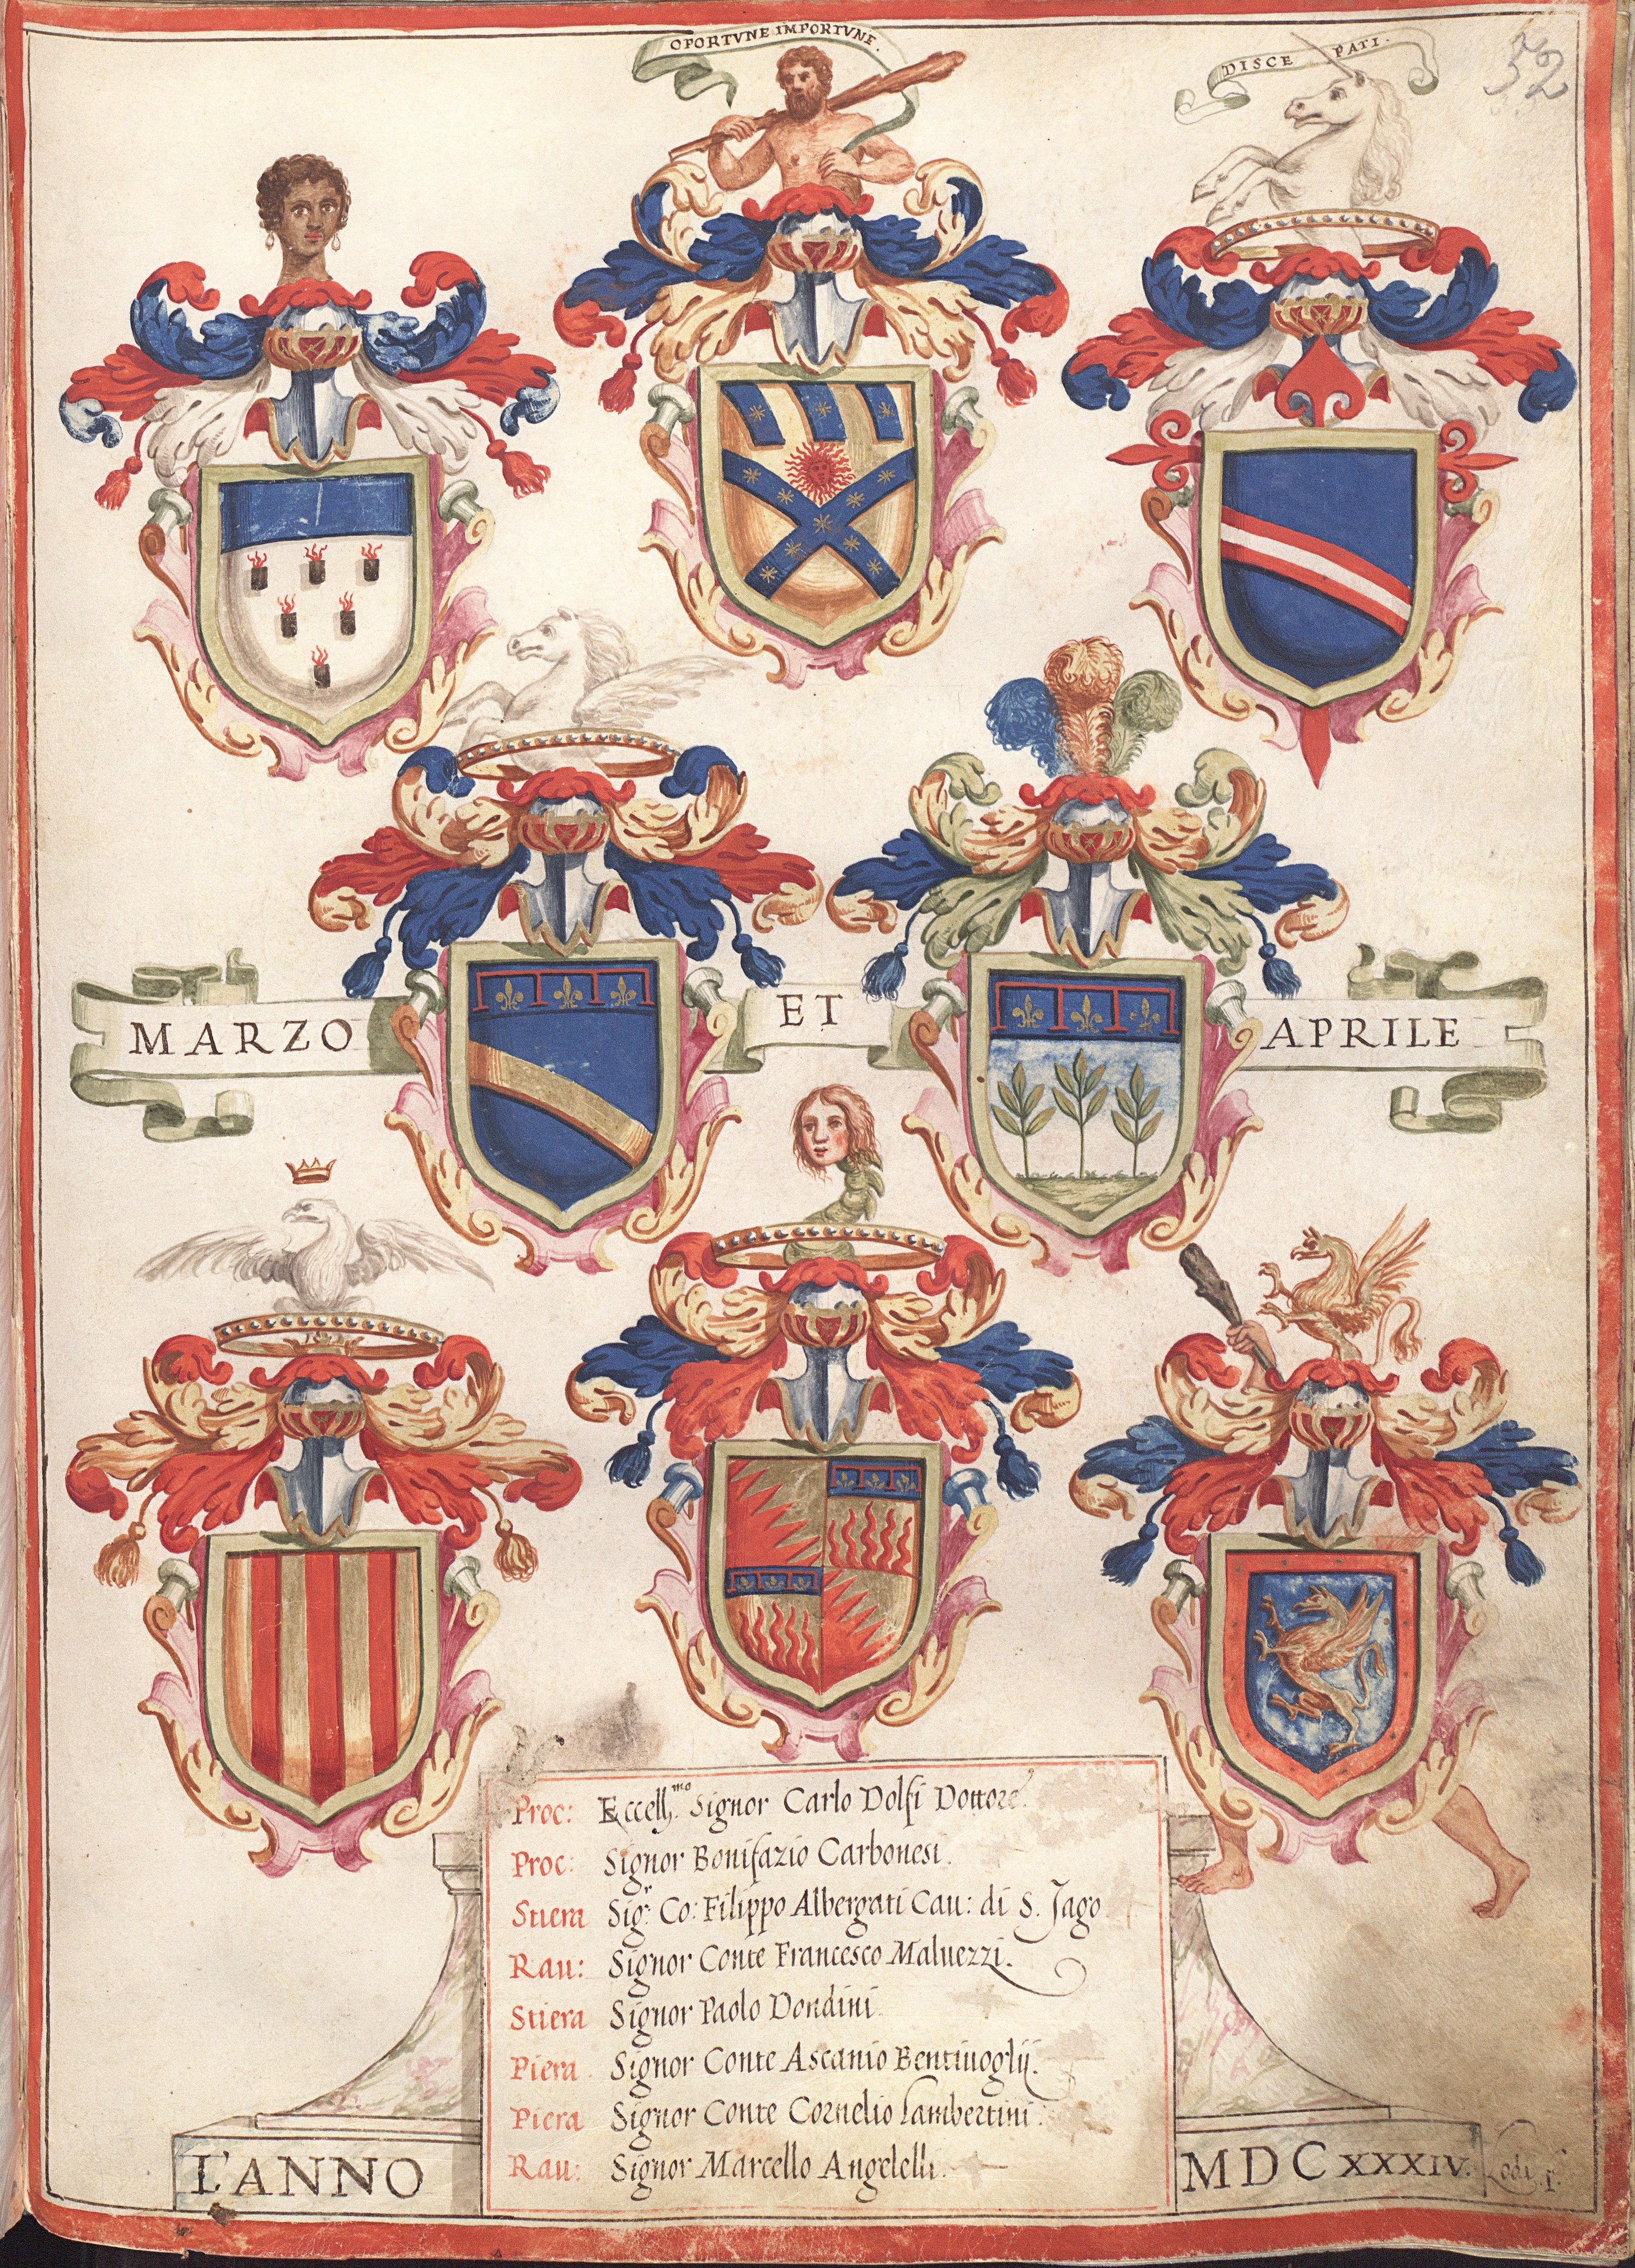 OPORTVNE IMPORTVNE.
DISCE PATI.
52
MARZO ET APRILE
Proc: Eccell.mo Signor Carlo Dolfi Dottore.
Proc: Signor Bonifazio Carbonesi.
Stiera Sig.r Co: Filippo Albergati Cau: di S. Jago
Rau: Signor Conte Francesco Maluezzi.
Stiera Signor Paolo Dondini.
Piera Signor Conte Ascanio Bentiuoglij.
Piera Signor Conte Cornelio Lambertini.
Rau: Signor Marcello Angelelli.
L'ANNO MDCXXXIV.